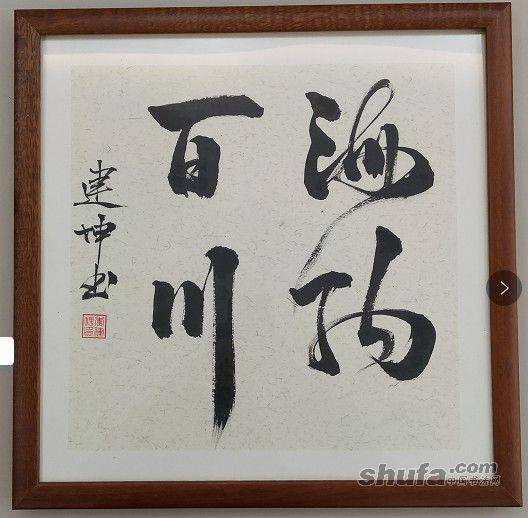 海纳
百川
建坤书
shufa.com
中国书法网